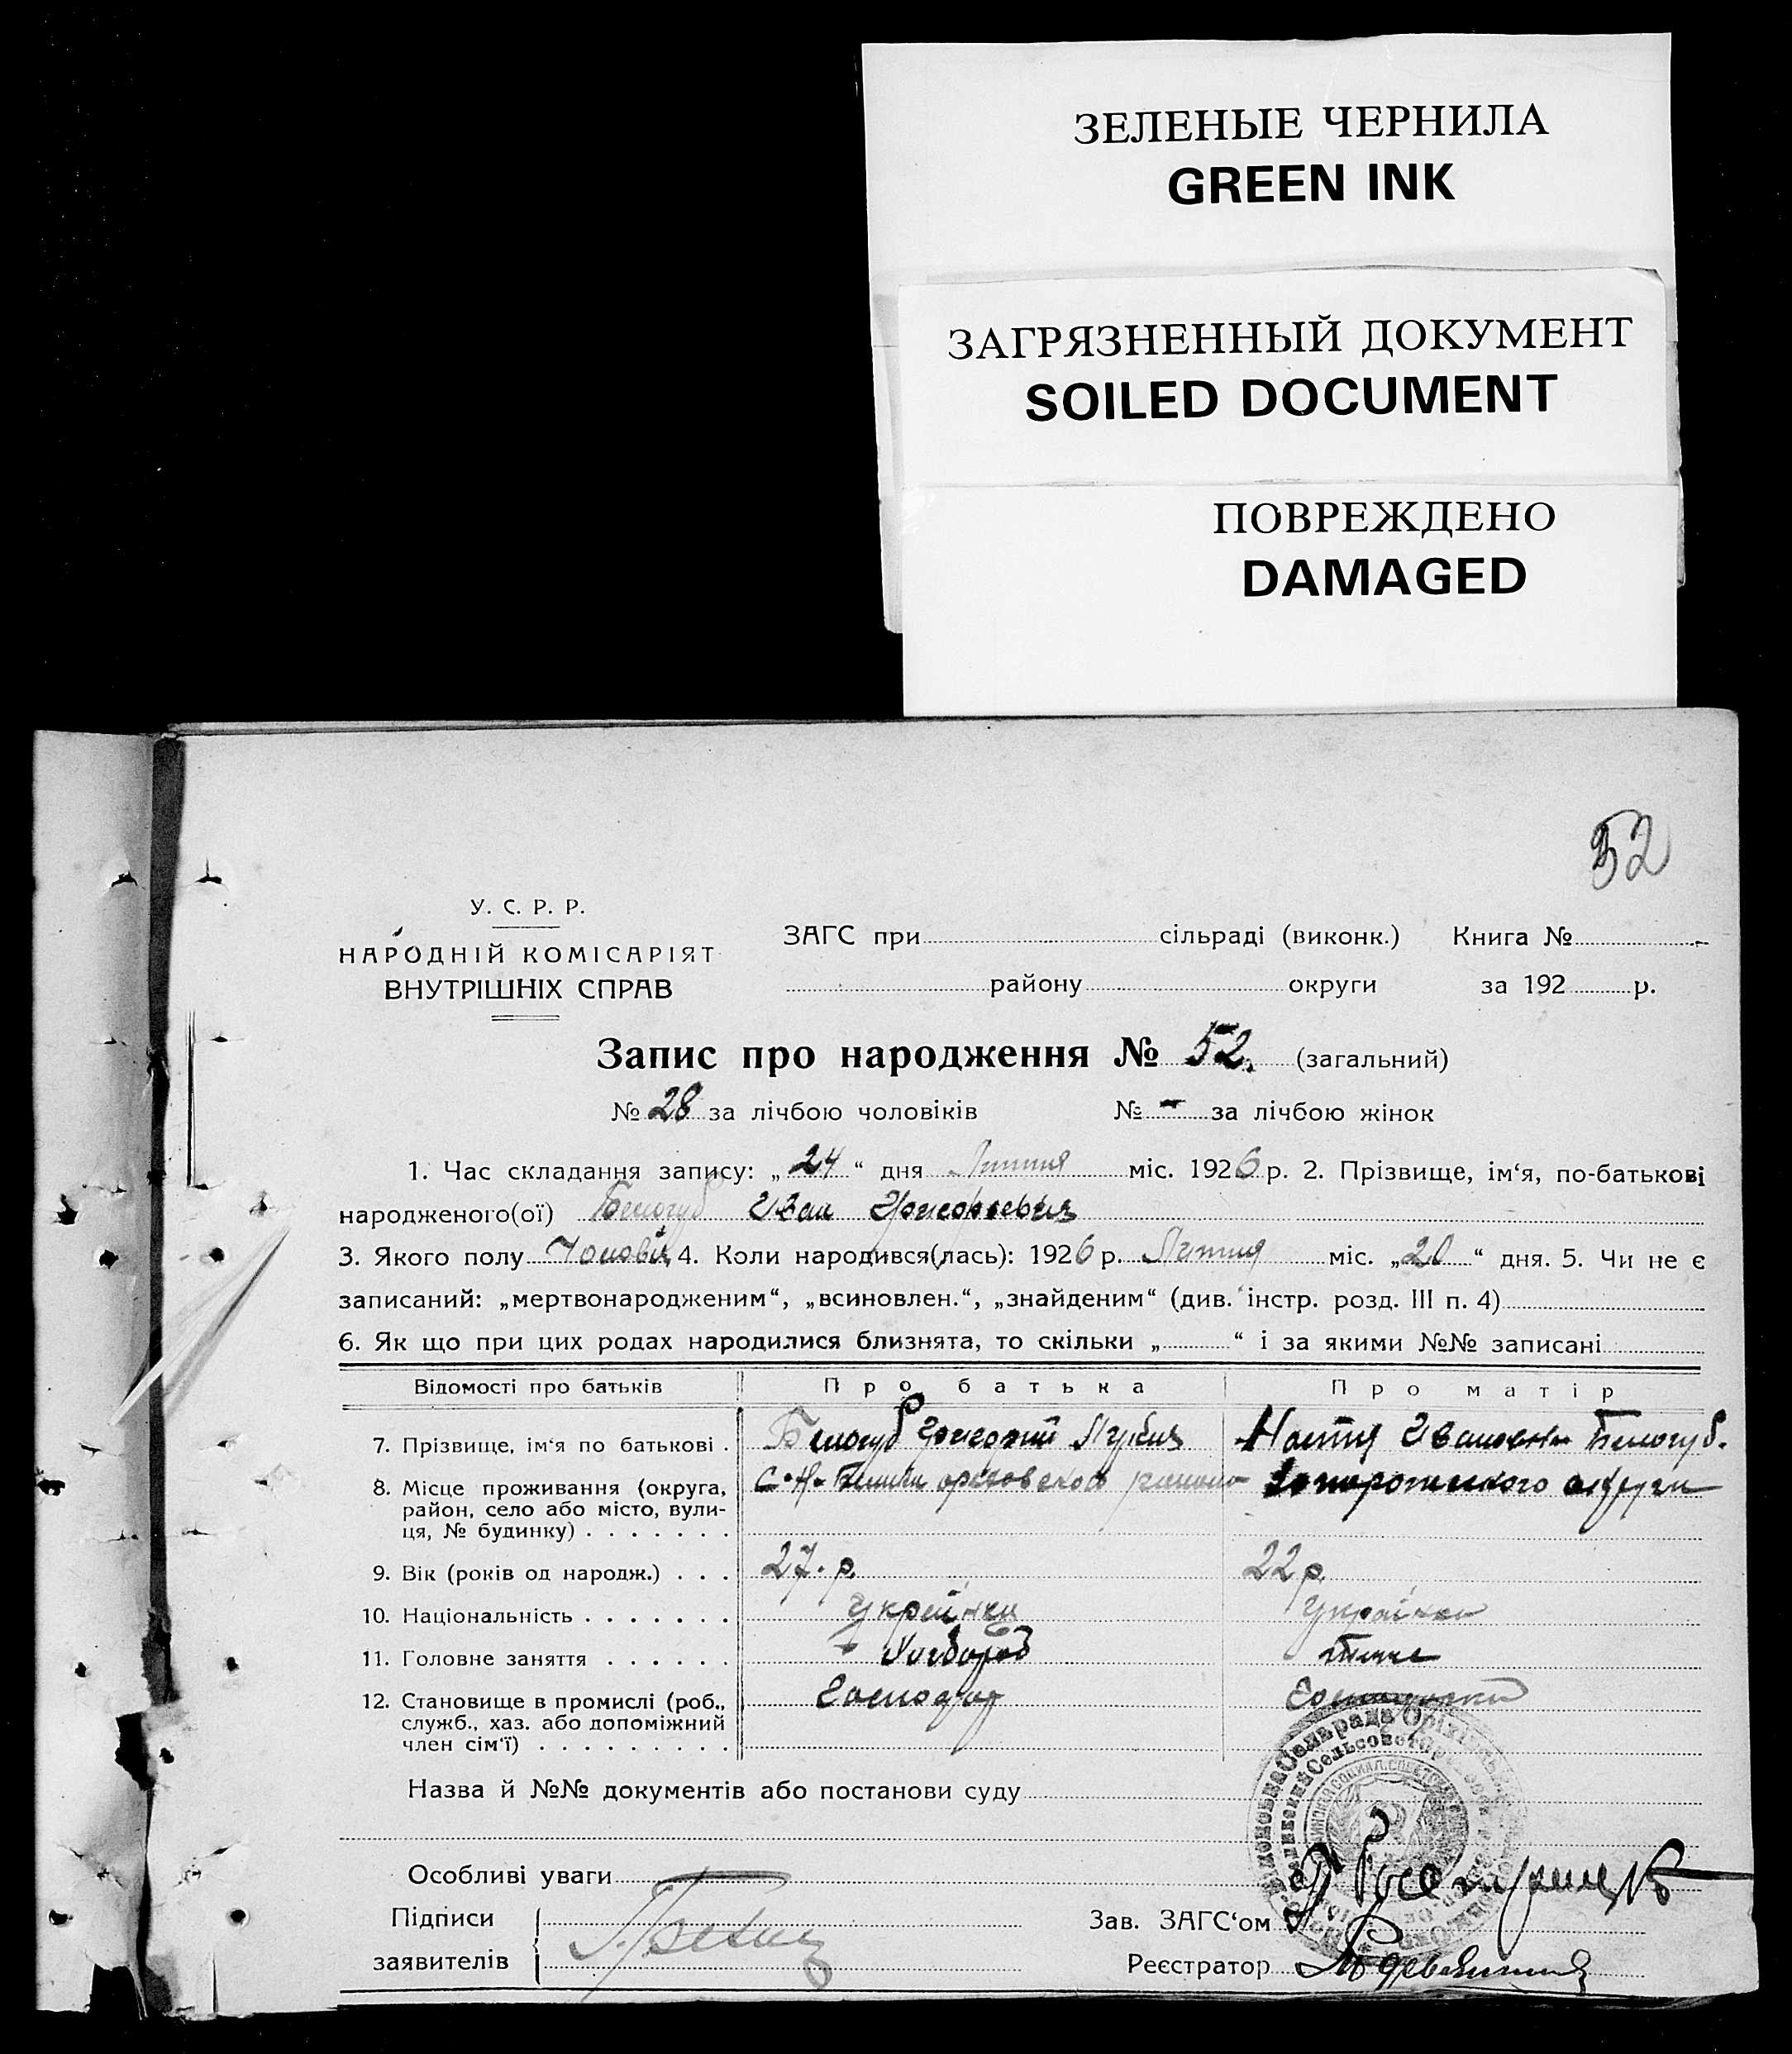 ЗЕЛЕНЫЕ ЧЕРНИЛА
GREEN INK
ЗАГРЯЗНЕННЫЙ ДОКУМЕНТ
SOILED DOCUMENT
ПОВРЕЖДЕНО
DAMAGED
52
У. С. Р. Р.
НАРОДНІЙ КОМІСАРІЯТ
ВНУТРІШНІХ СПРАВ
ЗАГС при сільраді (виконк.) Книга №
району округи за 192 р.
Запис про народження № 52. (загальний)
№ 28 за лічбою чоловіків № - за лічбою жінок
1. Час складання запису: „24“ дня Липня міс. 1926 р. 2. Прізвище, ім‘я, по-батькові
народженого(ої) Белогуб Иван
3. Якого полу 4. Коли народився(лась): 1926 р. Липня міс. „20“ дня. 5. Чи не є
записаний: „мертвонародженим“, „всиновлен.“, „знайденим“ (див. інстр. розд. III п. 4)
6. Як що при цих родах народилися близнята, то скільки „ “ і за якими №№ записані
Відомості про батьків Про батька Про матір
7. Прізвище, ім‘я по батькові . Белогуб Григорий Настя Ивановна Белогуб.
8. Місце проживання (округа,
район, село або місто, вули-
ця, № будинку) . . . . . . .
9. Вік (років од народж.) . . . 27. р. 22 р.
10. Національність . . . . . . .
11. Головне заняття . . . . . . Хлібороб
12. Становище в промислі (роб., Господар
служб., хаз. або допоміжний
член сім‘ї) . . . . . . . . .
Назва й №№ документів або постанови суду
Особливі уваги
Підписи
заявителів
Зав. ЗАГС‘ом
Реєстратор